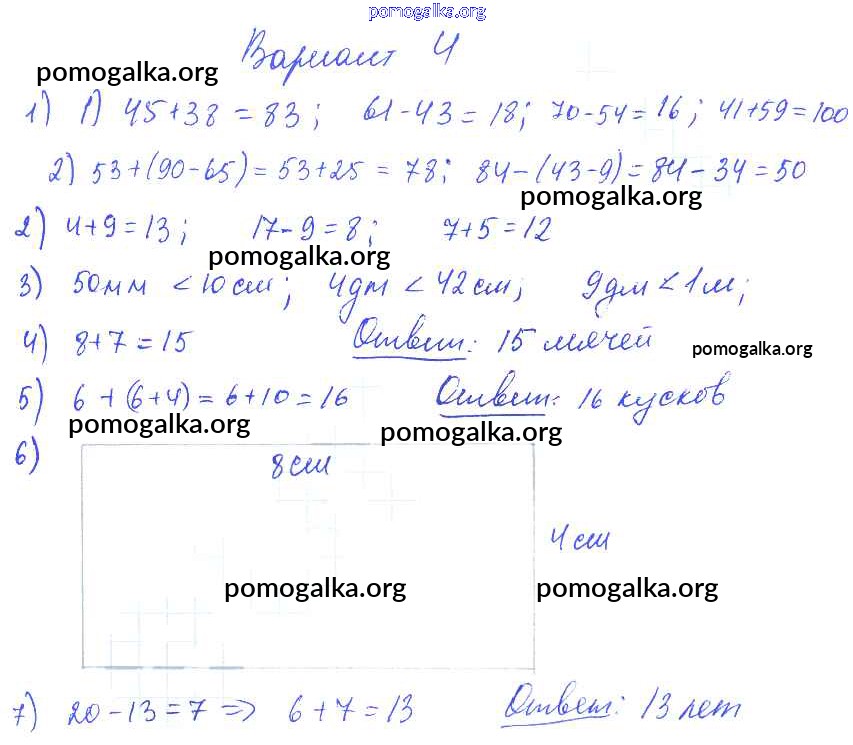 pomogalka.org
Вариант 4
pomogalka.org
1) 1) 45+38=83; 61-43=18; 70-54=16; 41+59=100
2) 53+(90-65)=53+25=78; 84-(43-9)=84-34=50
pomogalka.org
2) 4+9=13; 17-9=8; 7+5=12
pomogalka.org
3) 50мм <10см; 4дм < 42см; 9дм<1м;
4) 8+7=15 Ответ: 15 мячей
pomogalka.org
5) 6+(6+4)=6+10=16 Ответ: 16 кусков
pomogalka.org pomogalka.org
6) 8см
4см
pomogalka.org pomogalka.org
7) 20-13=7 => 6+7=13 Ответ: 13 лет